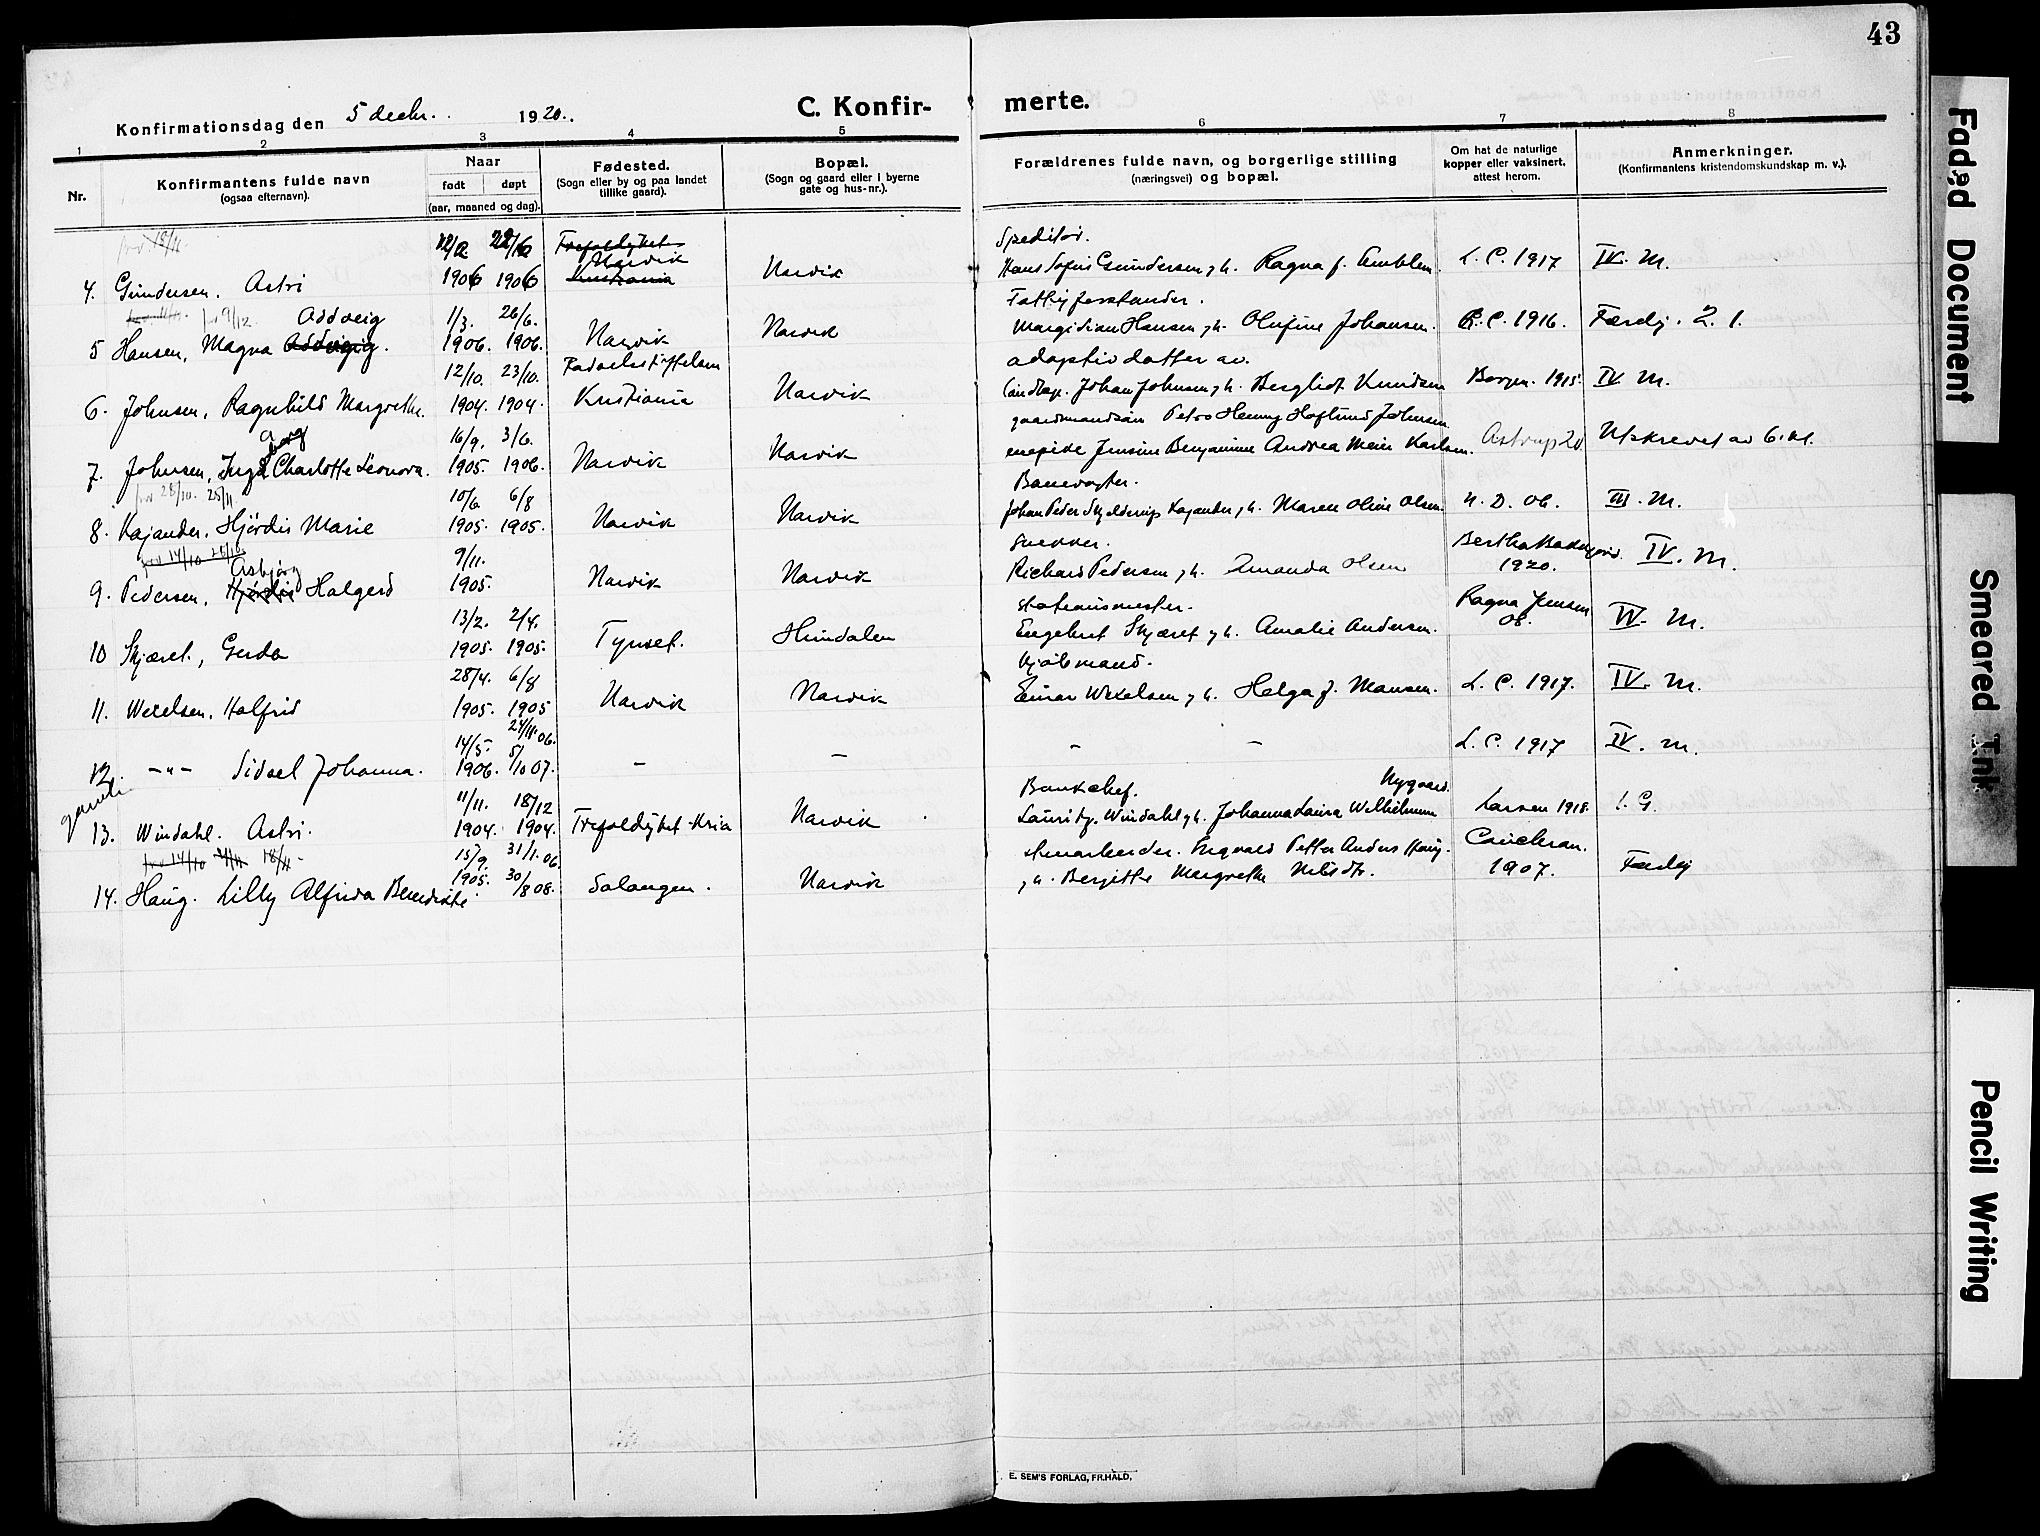 43
Konfirmationsdag den 5 decbr. 1920.
C. Konfir- merte.
1 2 3 4 5 6 7 8
Nr.
Konfirmantens fulde navn
(ogsaa efternavn).
Naar
født døpt
(aar, maaned og dag).
Fødested.
(Sogn eller by og paa landet
tillike gaard).
Bopæl.
(Sogn og gaard eller i byerne
gate og hus-nr.).
Forældrenes fulde navn, og borgerlige stilling
(næringsvei) og bopæl.
Om hat de naturlige
kopper eller vaksinert,
attest herom.
Anmerkninger.
(Konfirmantens kristendomskundskap m. v.).
Trefoldighet Speditør.
Narvik
4. Gundersen. Astri 1906 1906 Kristiania Narvik Hans Sofus Gundersen, h. Ragna f. Amblem. L. C. 1917 IV. M.
Oddveig 1/3. 26/6. Fattigforstander.
5 Hansen, Magna 1906. 1906. Narvik Narvik Hansen, h. Olufine Johansen. C. 1916. Færdig. 2. 1.
12/10. 23/10. Fødselsstiftelsen adoptivdatter av
6. Johnsen, Ragnhild Margrethe. 1904. 1904. Kristiania Narvik Johan Johnsen, h. Bergliot Knudsen Borgen. 1915. IV. M.
16/9. 3/6. gaardmandssøn Johnsen
7. Johnsen, Charlotte Leonora. 1905. 1906. Narvik Narvik enepike Jensine Benjamine Andrea Marie Karlsen. Astrup 20 Utskrevet av 6. kl.
10/6 6/8 Banevogter.
8. Kajander, Hjørdis Marie 1905. 1905. Narvik Narvik Johan Peder Skjelderup Kajander, h. Maren Oline Olsen. n. D. Ob. III. M.
Asbjørg 9/11. Snekker.
9. Pedersen, Hjørdis Halgerd 1905. Narvik Narvik Richard Pedersen, h. Amanda Olsen Bertha 1920. IV. M.
13/2. 2/4. Stationsmester.
10 Skjæret, Gerda 1905. 1905. Tynset. Hundalen Engebret Skjæret, h. Amalie Andersen. Ragna Jensen Ob. IV. M.
28/4. 6/8 Kjøbmand.
11. Wexelsen, Halfrid 1905. 1905 Narvik Narvik Einar Wexelsen, h. Helga f. Monsen. L. C. 1917. IV. M.
14/5. 24/11.06.
12. -"- Sidsel Johanna. 1906. 5/10 07. - - - - L. C. 1917 IV. M.
11/11. 18/12 Bankchef. Nygaard.
13. Windahl. Astri. 1904. 1904. Trefoldighet Kria Narvik Lauritz Windahl, h. Johanna Laura Wilhelmine Larsen 1918. 1. G.
14/10 18/11
15/9. 31/1.06. Petter Anders Haug.
14. Haug. Lilly Alfrida Benedikte 1905. 30/8 08. Salangen. Narvik h. Bergitte Margrethe 1907. Færdig
E. SEM'S FORLAG, FR.HALD.
Faded Document
Smeared Ink
Pencil Writing